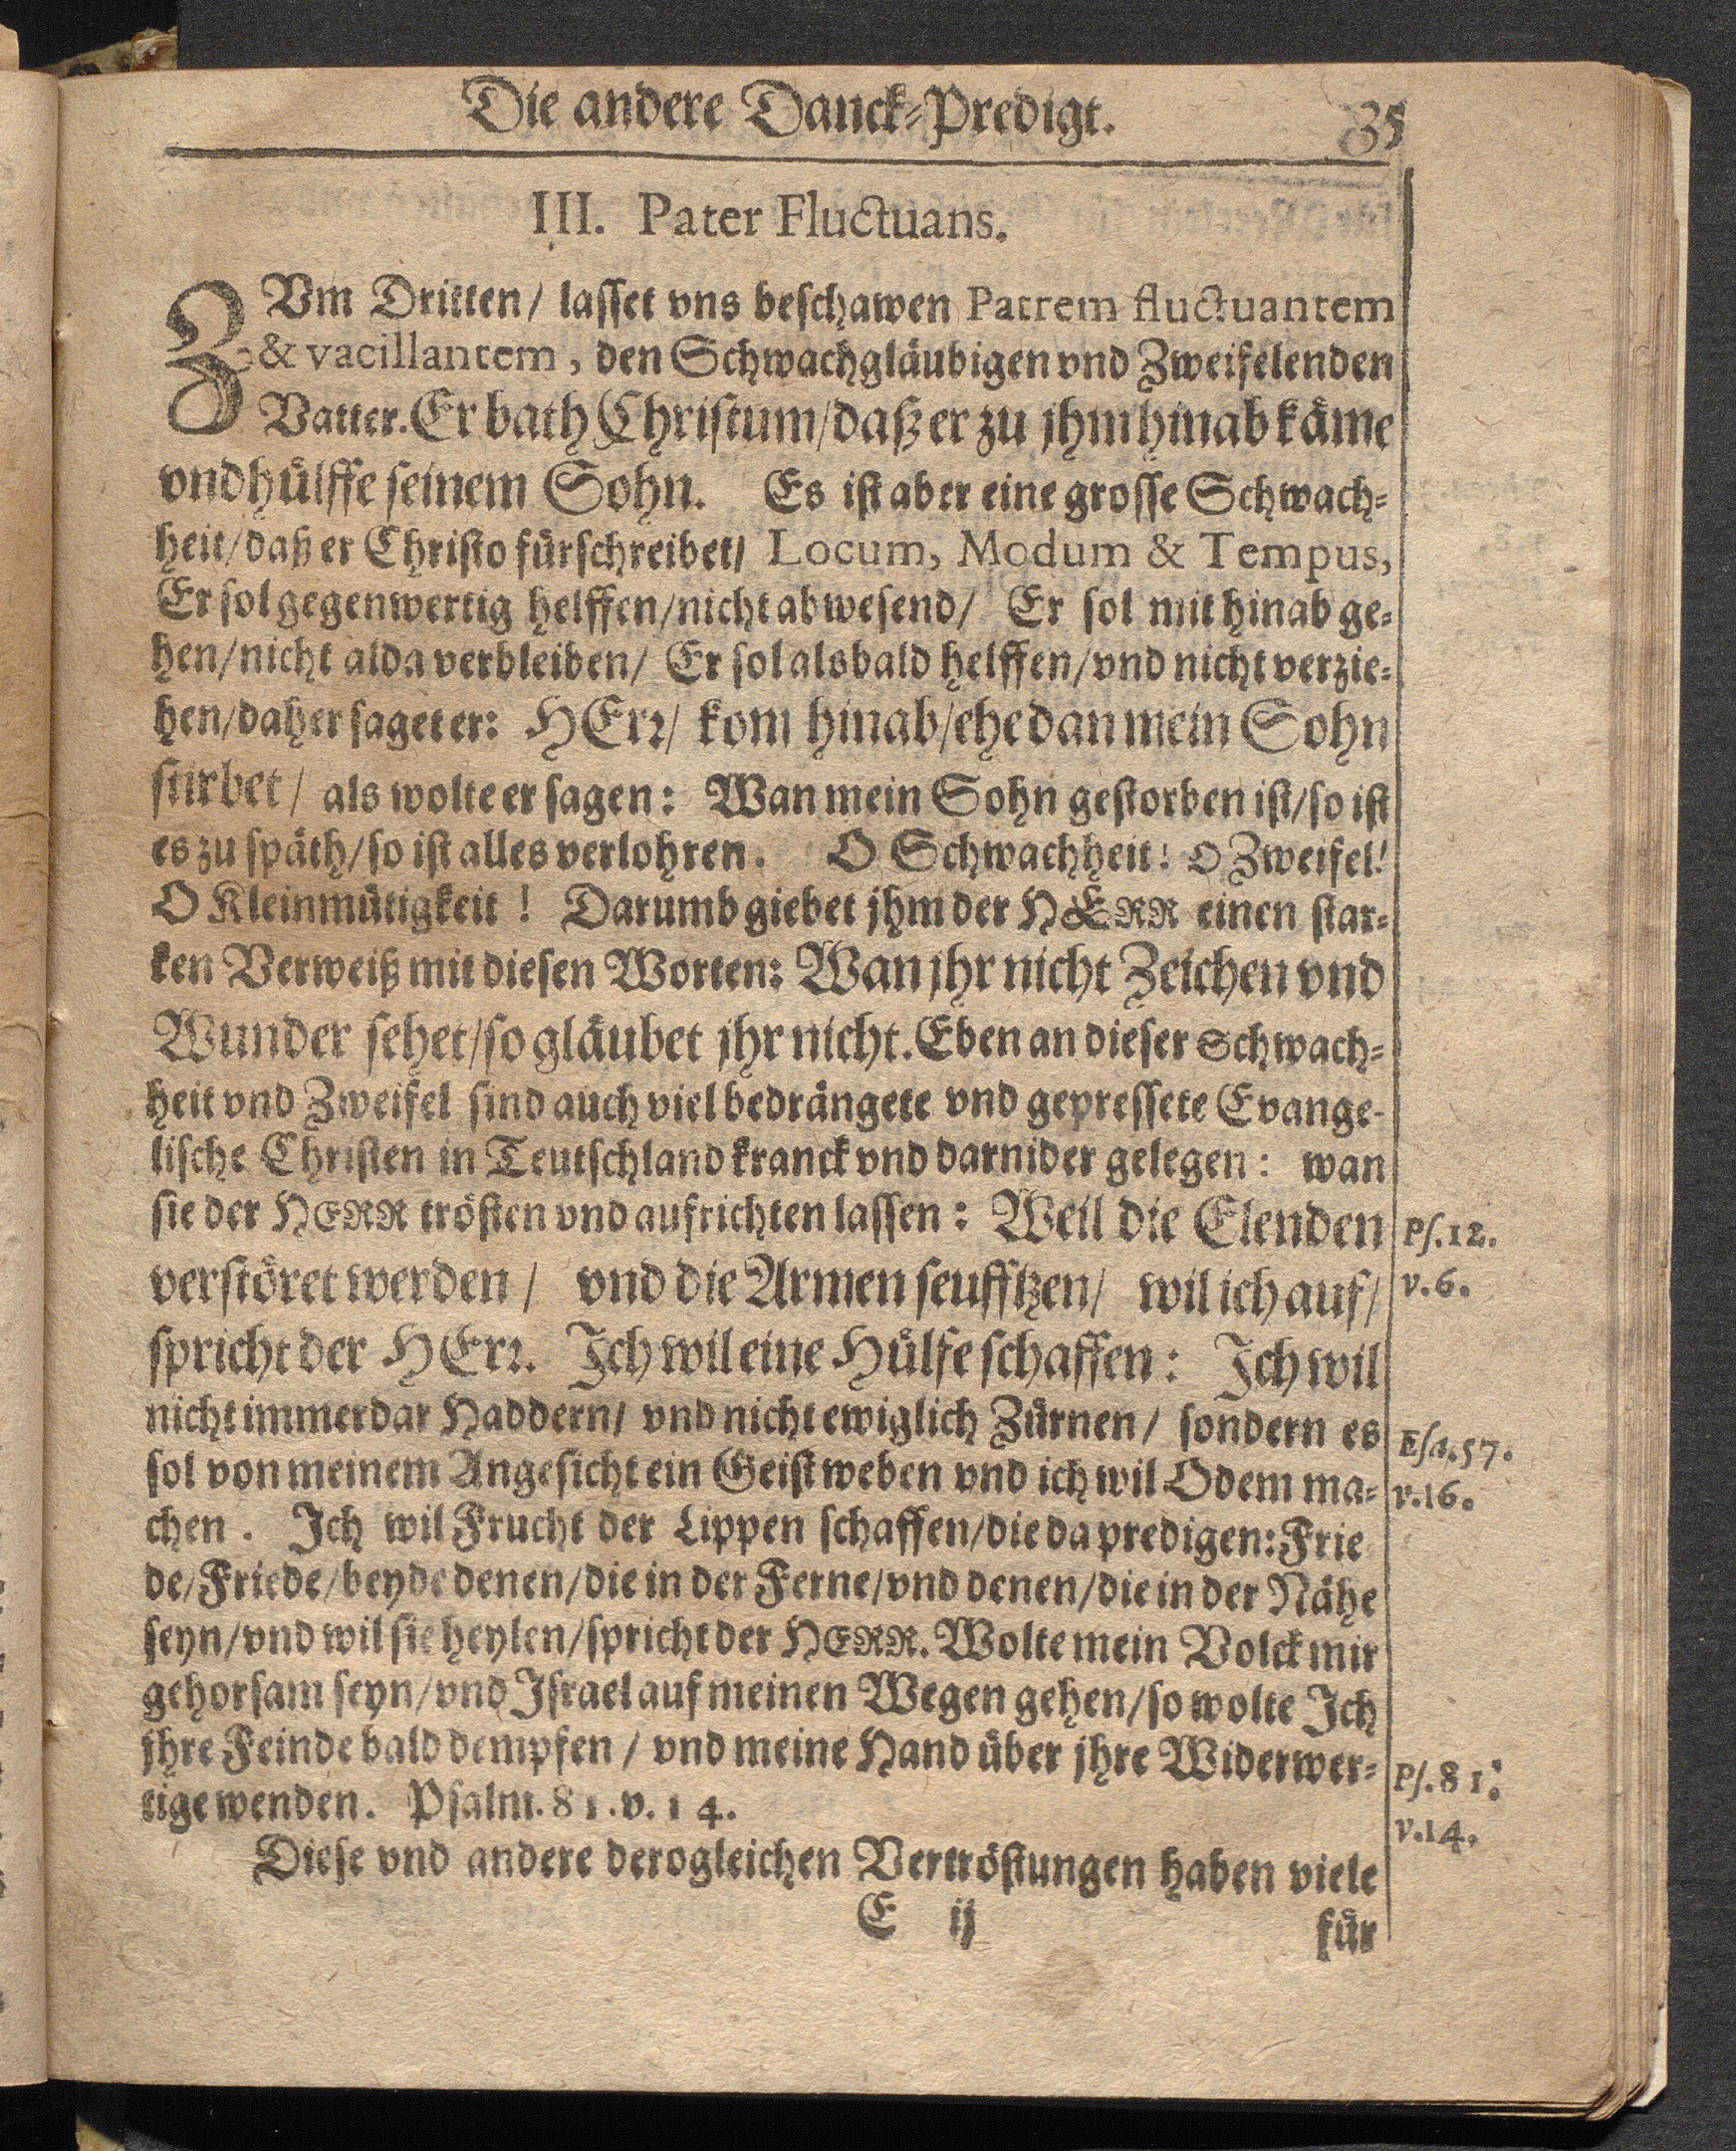 Die andere Danck-Predigt. 35
III. Pater Fluctuans.
ZVm Dritten/ lasset vns beschawen Patrem fluctuantem
& vacillantem, den Schwachgläubigen vnd Zweifelenden
Vatter. Er bath Christum/daß er zu jhm hinab käme
vnd hülffe seinem Sohn. Es ist aber eine grosse Schwach-
heit/daß er Christo fürschreibet/ Locum, Modum & Tempus,
Er sol gegenwertig helffen/nicht abwesend/ Er sol mit hinab ge-
hen/nicht alda verbleiben/ Er sol alsbald helffen/vnd nicht verzie-
hen/daher saget er: HErr/ kom hinab/ehe dan mein Sohn
stirbet/ als wolte er sagen: Wan mein Sohn gestorben ist/so ist
es zu späth/so ist alles verlohren. O Schwachheit! O Zweifel!
O Kleinmütigkeit! Darumb giebet jhm der HERR einen star-
ken Verweiß mit diesen Worten: Wan jhr nicht Zeichen vnd
Wunder sehet/so gläubet jhr nicht. Eben an dieser Schwach-
heit vnd Zweifel sind auch viel bedrängete vnd gepressete Evange-
lische Christen in Teutschland kranck vnd darnider gelegen: wan
sie der HERR trösten vnd aufrichten lassen: Weil die Elenden Ps. 12.
verstöret werden/ vnd die Armen seufftzen/ wil ich auf/ v. 6.
spricht der HErr. Ich wil eine Hülfe schaffen: Ich wil
nicht immerdar Haddern/ vnd nicht ewiglich Zürnen/ sondern es Esa. 57.
sol von meinem Angesicht ein Geist weben vnd ich wil Odem ma- v. 16.
chen. Ich wil Frucht der Lippen schaffen/die da predigen: Frie
de/Friede/beyde denen/die in der Ferne/vnd denen/die in der Nähe
seyn/vnd wil sie heylen/spricht der HERR. Wolte mein Volck mir
gehorsam seyn/vnd Israel auf meinen Wegen gehen/so wolte Ich
jhre Feinde bald dempfen/ vnd meine Hand über jhre Widerwer- Ps. 81.
tige wenden. Psalm. 81. v. 14. v. 14.
Diese vnd andere derogleichen Vertröstungen haben viele
E ij für